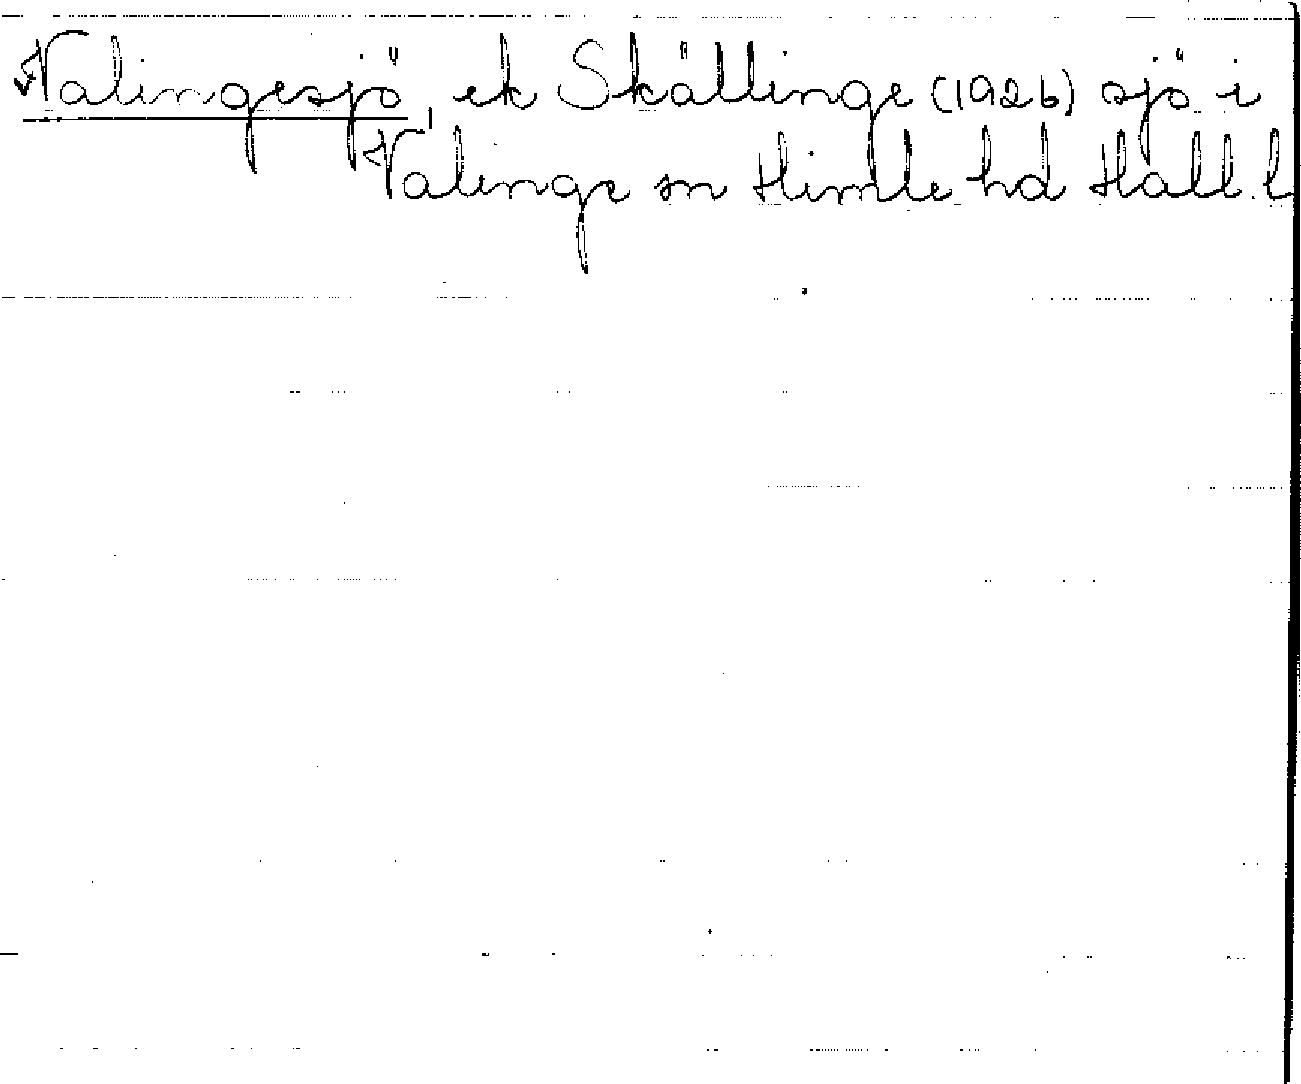 Valingesjö, ek Skällinge (1926) sjö i
Valinge sn Himle hd Hall. l